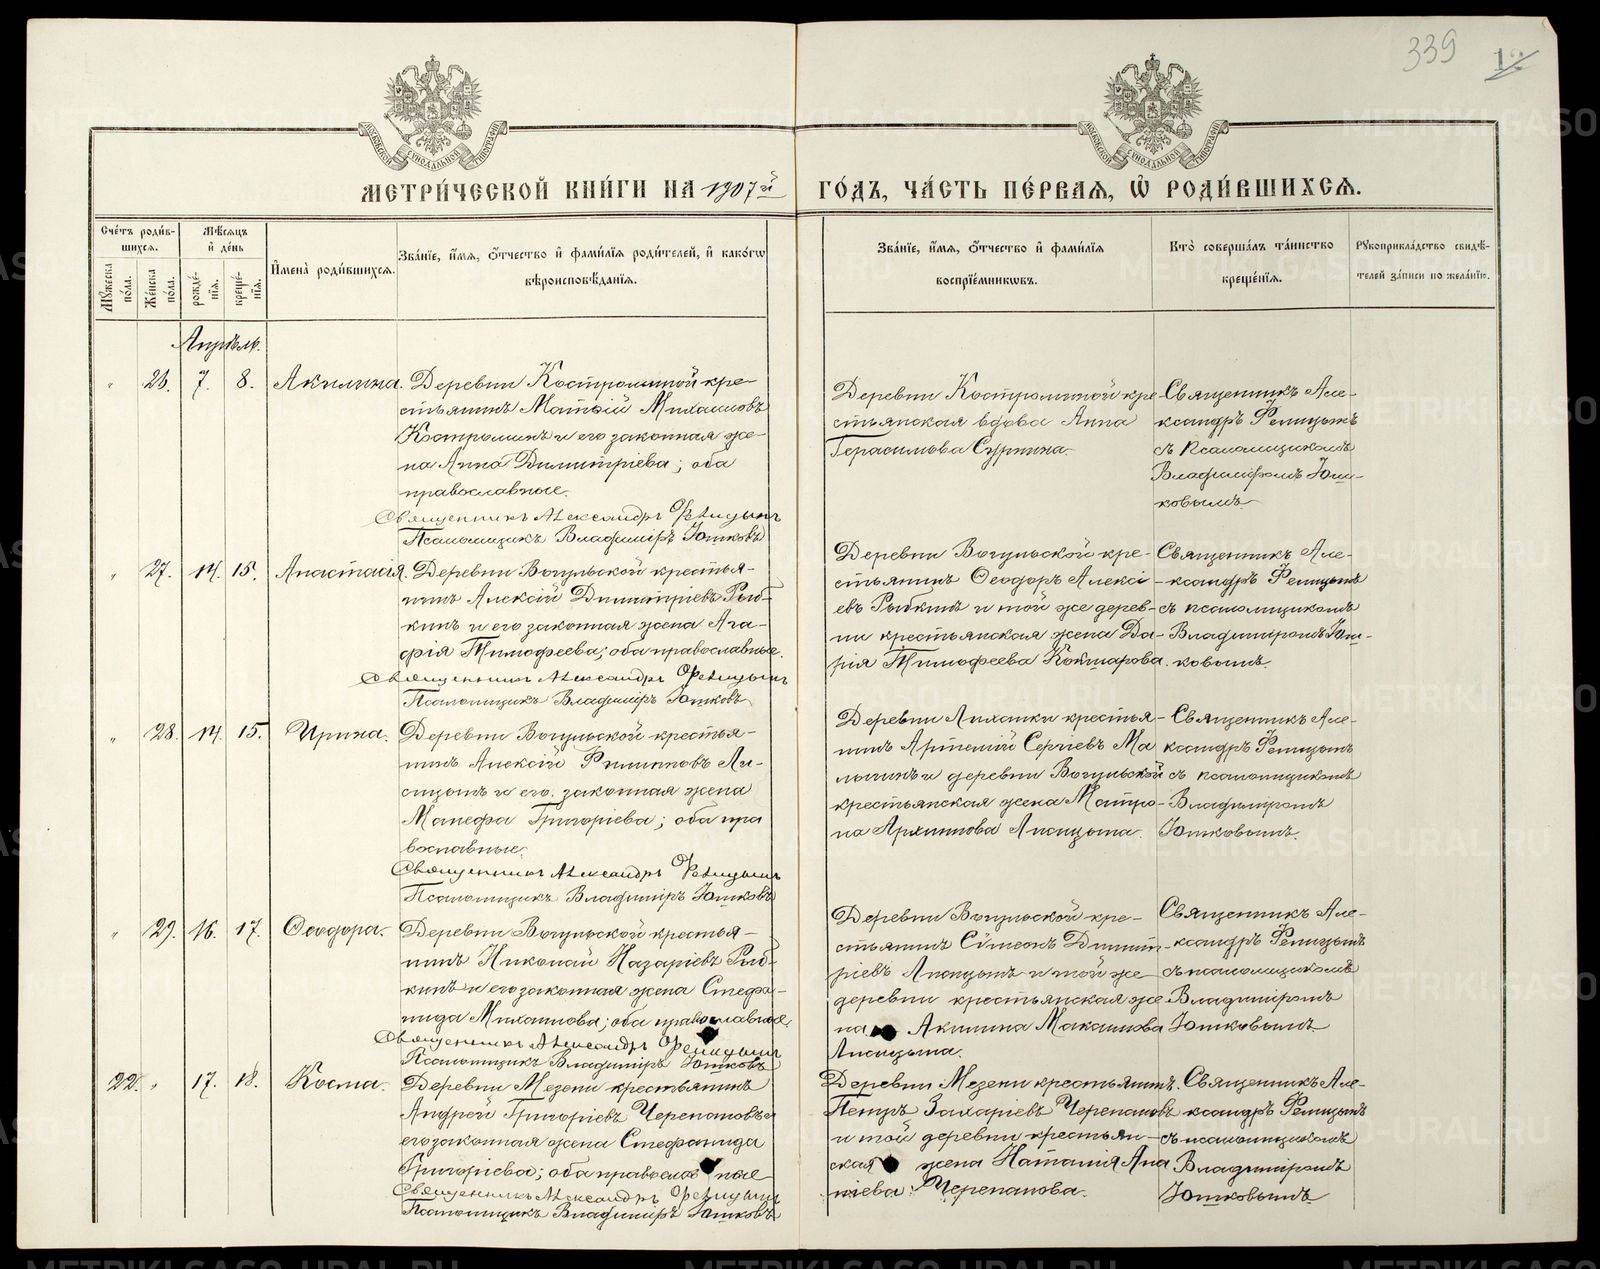 339
12
МОСКОВСКОЙ СѴНОДАЛЬНОЙ ТИПОГРАФІИ
МОСКОВСКОЙ СѴНОДАЛЬНОЙ ТИПОГРАФІИ
МЕТРИ́ЧЕСКОЙ КНИ́ГИ НА 1907й ГО́ДЪ, ЧА́СТЬ ПЕ́РВАЯ, Ѽ РОДИ́ВШИХСѦ.
Сче́тъ роди́вшихся.
Му́жеска по́ла.
Же́нска по́ла.
Мѣ́сяцъ и҆ де́нь
рожде́нїя.
креще́нїя.
И҆мена̀ роди́вшихся.
Зва́нїе, и҆́мя, ѻ҆́тчество и҆ фами́лїя роди́телей, и҆ како́гѡ вѣроисповѣ́данїя.
Зва́нїе, и҆́мя, ѻ҆́тчество и҆ фами́лїя воспрїе́мниковъ.
Кто̀ соверша́лъ та́инство креще́нїя.
Рꙋкоприкла́дство свидѣ́телей за́писи по жела́нїю.
Апрѣль.
" 26. 7. 8. Акилина. Деревни Костроминой кре-
стьянинъ Матѳій Михаиловъ
Костроминъ и его законная же-
на Анна Димитріева; оба
православные.
Священникъ Александръ Рѣпицынъ
Псаломщикъ Владиміръ Юшковъ
Деревни Костроминой кре-
стьянская вдова Анна
Герасимова Сурнина.
Священникъ Але-
ксандръ Рѣпицынъ
съ псаломщикомъ
Владиміромъ Юш-
ковымъ
" 27. 14. 15. Анастасія. Деревни Вогульской крестья-
нинъ Алексій Димитріевъ Рыб-
кинъ и его законная жена Ага-
фія Тимофеева; оба православные.
Священникъ Александръ Рѣпицынъ
Псаломщикъ Владиміръ Юшковъ
Деревни Вогульской кре-
стьянинъ Ѳеодоръ Алексі-
евъ Рыбкинъ и той же дерев-
ни крестьянская жена Да-
рія Тимофеева Комарова.
Священникъ Але-
ксандръ Рѣпицынъ
съ псаломщикомъ
Владиміромъ Юш-
ковымъ.
" 28. 14. 15. Ирина. Деревни Вогульской крестья-
нинъ Алексій Филипповъ Ли-
сицынъ и его законная жена
Манефа Григоріева; оба пра
вославные.
Священникъ Александръ Рѣпицынъ
Псаломщикъ Владиміръ Юшковъ
Деревни крестья-
нинъ Артемій Сергіевъ Ма
и деревни Вогульской
крестьянская жена Матро-
на Архиппова
Священникъ Але-
ксандръ Рѣпицынъ
съ псаломщикомъ
Владиміромъ
Юшковымъ.
" 29. 16. 17. Ѳеодора. Деревни Вогульской крестья-
нинъ Николай Назаріевъ Рыб-
кинъ и его законная жена Стефа-
нида Михаилова; оба православные,
Священникъ Александръ Рѣпицынъ
Псаломщикъ Владиміръ Юшковъ
Деревни Вогульской кре-
стьянинъ Сѵмеонъ Димит-
ріевъ и той же
деревни крестьянская же
на Акилина Макаимова
Священникъ Але-
ксандръ Рѣпицынъ
съ псаломщикомъ
Владиміромъ
Юшковымъ
22. " 17. 18. Косма. Деревни Мезени крестьянинъ
Андрей Григоріевъ Черепановъ и
его законная жена Стефанида
Григоріева; оба православ ные
Священникъ Александръ Рѣпицынъ
Псаломщикъ Владиміръ Юшковъ
Деревни Мезени крестьянинъ
Петръ Захаріевъ Черепановъ
и той деревни крестьян-
ская жена Наталія Ана
ніева Черепанова.
Священникъ Але-
ксандръ Рѣпицынъ
съ псаломщикомъ
Владиміромъ
Юшковымъ
METRIKI.GASO-URAL.RU